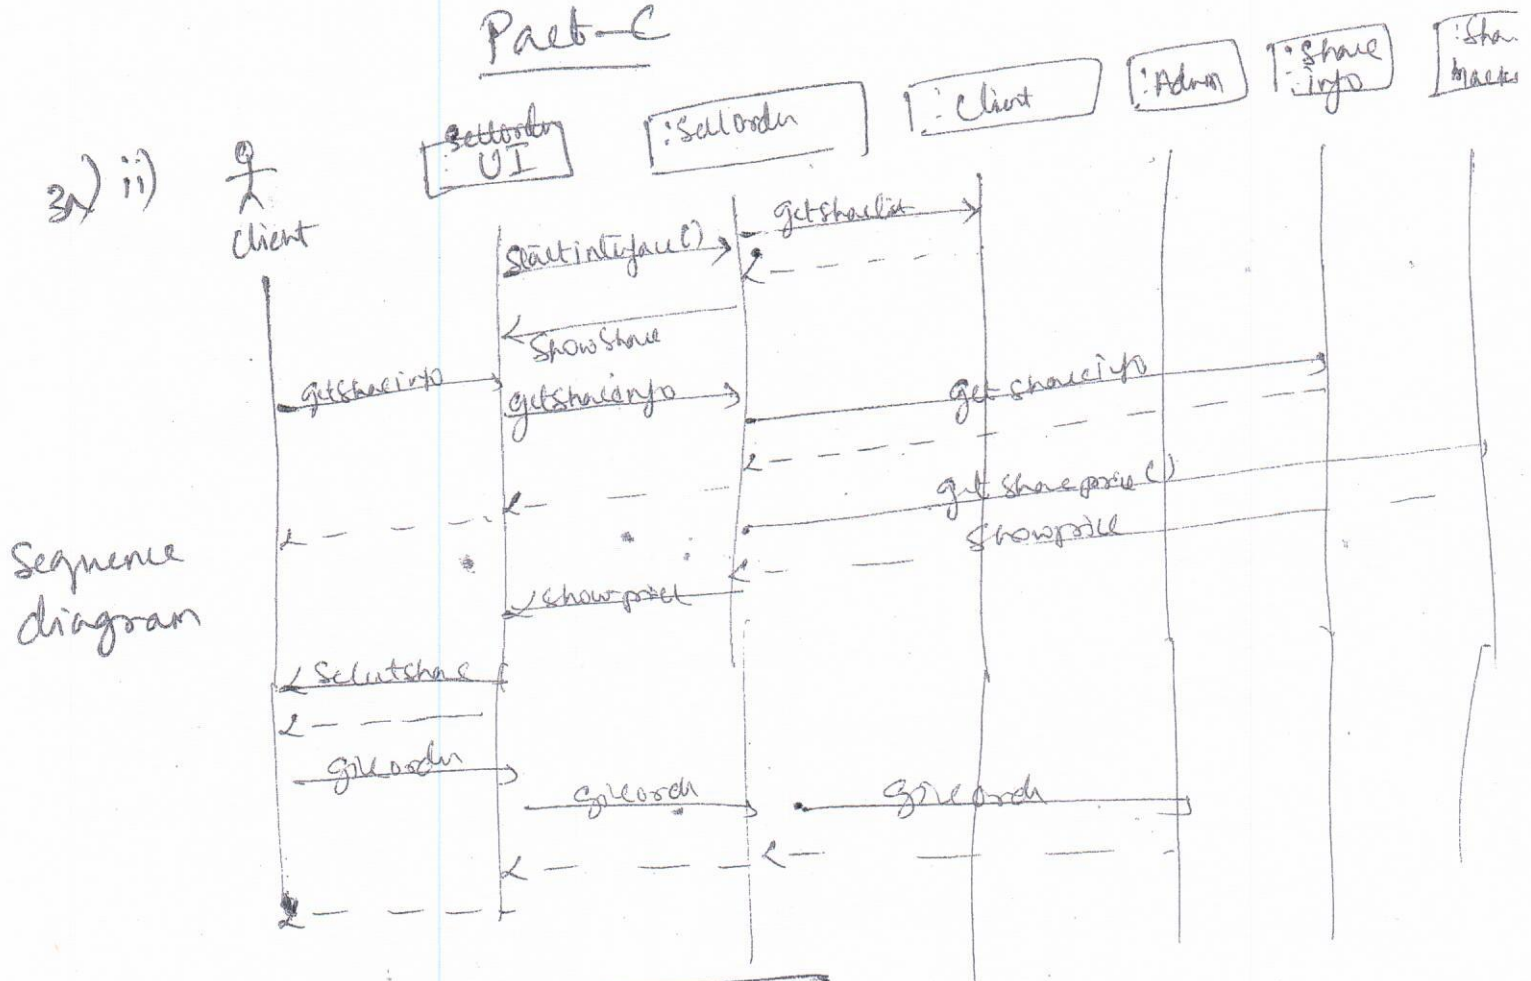 Part-C
3a) ii)
client
sellorder
UI
:Sellorder
:Client
:Admin
:Share
info
:Sha
getsharelist
startinterface()
showshare
getshareinfo
getshareinfo
getshareinfo
getshareprice()
showprice
showprice
Sequence
diagram
Selectshare
giveorder
giveorder
giveorder